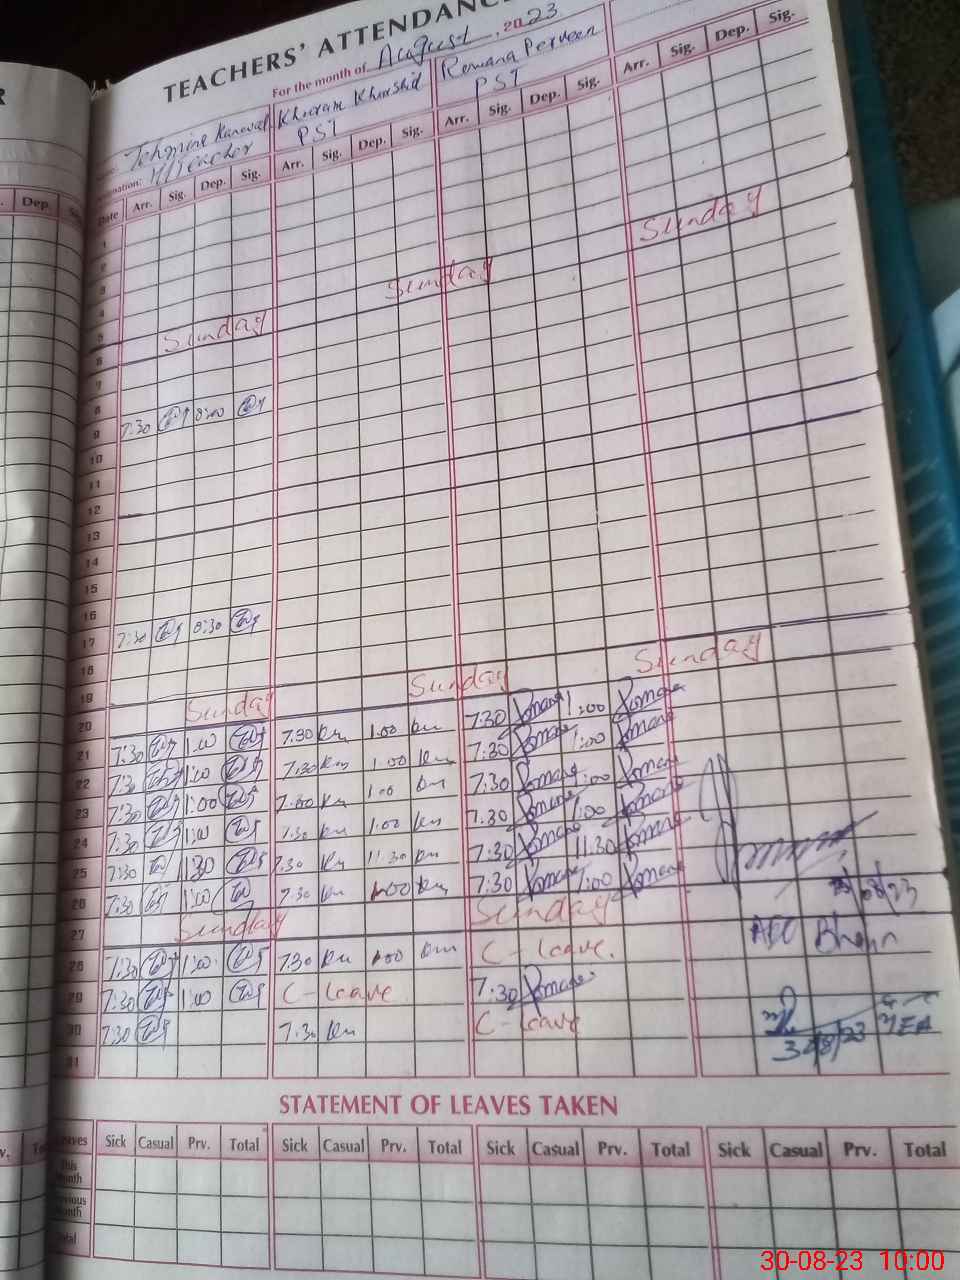 TEACHERS' ATTENDANC
For the month of August, 2023
Tehmine Kanwal Khuram Khurshid Romana Perveen
H/Teacher PST PST
Date Arr. Sig. Dep. Sig. Arr. Sig. Dep. Sig. Arr. Sig. Dep. Sig. Arr. Sig. Dep. Sig.
1
2
3
4
5
6 Sunday Sunday Sunday
7
8
9 7:30 8:00
10
11
12
13
14
15
16
17 7:30 8:30
18
19
20 Sunday Sunday Sunday
21 7:30 1:00 7:30 km 1:00 km 7:30 Romana 1:00 Romana
22 7:30 1:00 7:30 km 1:00 km 7:30 Romana 1:00 Romana
23 7:30 1:00 7:00 km 1:00 km 7:30 Romana 1:00 Romana
24 7:30 1:00 7:30 km 1:00 km 7:30 Romana 1:00 Romana
25 7:30 11:30 7:30 km 11:30 km 7:30 Romana 11:30 Romana
26 7:30 1:00 7:30 km 1:00 km 7:30 Romana 1:00 Romana
27 Sunday Sunday
28 7:30 1:00 7:30 km 1:00 km C-leave.
29 7:30 1:00 C-leave 7:30 Romana
30 7:30 7:30 km C-leave
31
AEO
MEA
30/8/23
STATEMENT OF LEAVES TAKEN
Leaves Sick Casual Prv. Total Sick Casual Prv. Total Sick Casual Prv. Total Sick Casual Prv. Total
This Month
Previous Month
Total
30-08-23 10:00